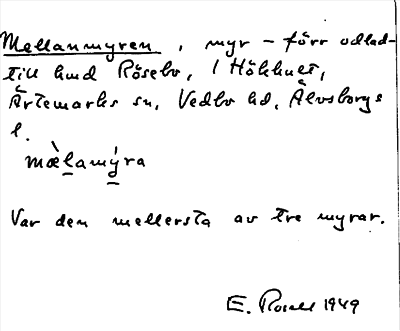 Mellanmyren, myr – förr odlad–
till hmd Rösebo, 1 Hökhult,
Ärtemarks sn, Vedbo hd, Älvsborgs
l.
mæ̀lamýra
Var den mellersta av tre myrar.
E. Rosell 1949